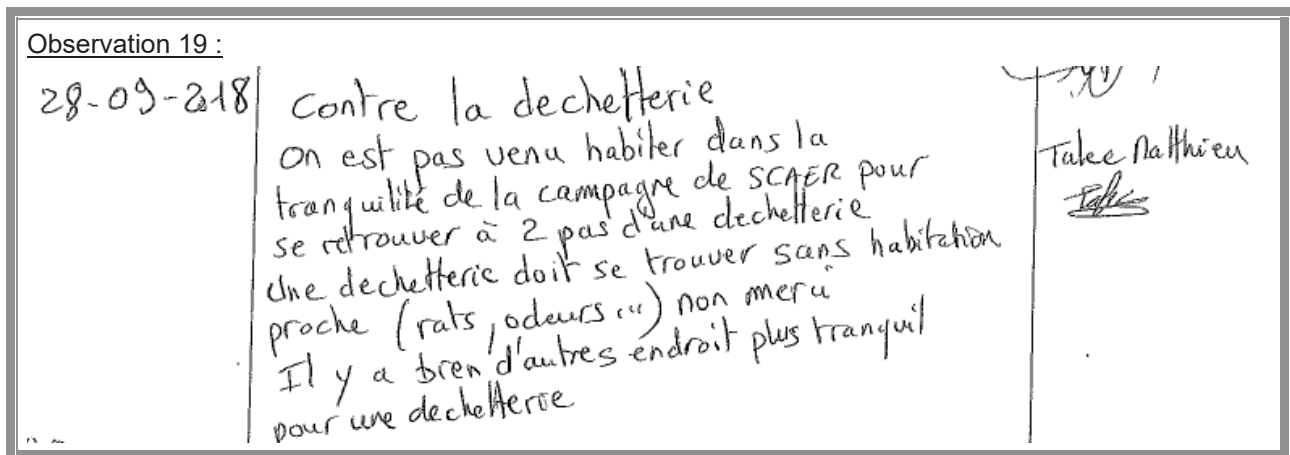 Observation 19 :
28-09-2018
Contre la dechetterie
On est pas venu habiter dans la
tranquilité de la campagne de SCAER pour
se retrouver à 2 pas d'une dechetterie
Une dechetterie doit se trouver sans habitation
proche (rats, odeurs...) non merci
Il y a bien d'autres endroit plus tranquil
pour une dechetterie
Matthieu